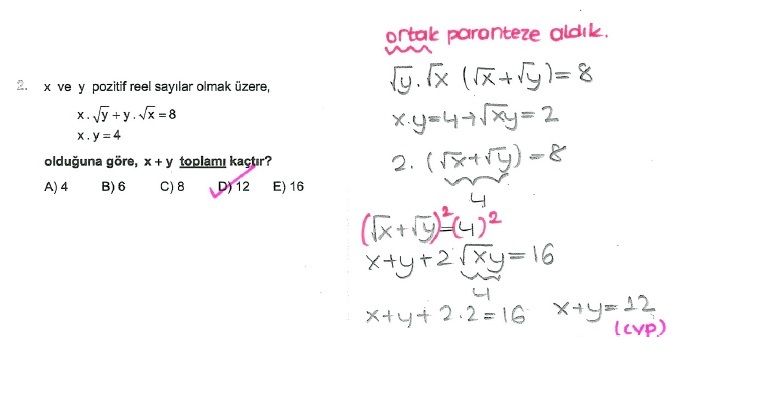 2. x ve y pozitif reel sayılar olmak üzere,
x.√y + y.√x = 8
x.y = 4
olduğuna göre, x + y toplamı kaçtır?
A) 4 B) 6 C) 8 D) 12 E) 16
ortak paronteze aldık.
√y.√x (√x+√y)=8
x.y=4→√xy=2
2.(√x+√y)=8
4
(√x+√y)²=(4)²
x+y+2√xy=16
4
x+y+2.2=16 x+y=12
(cvp)